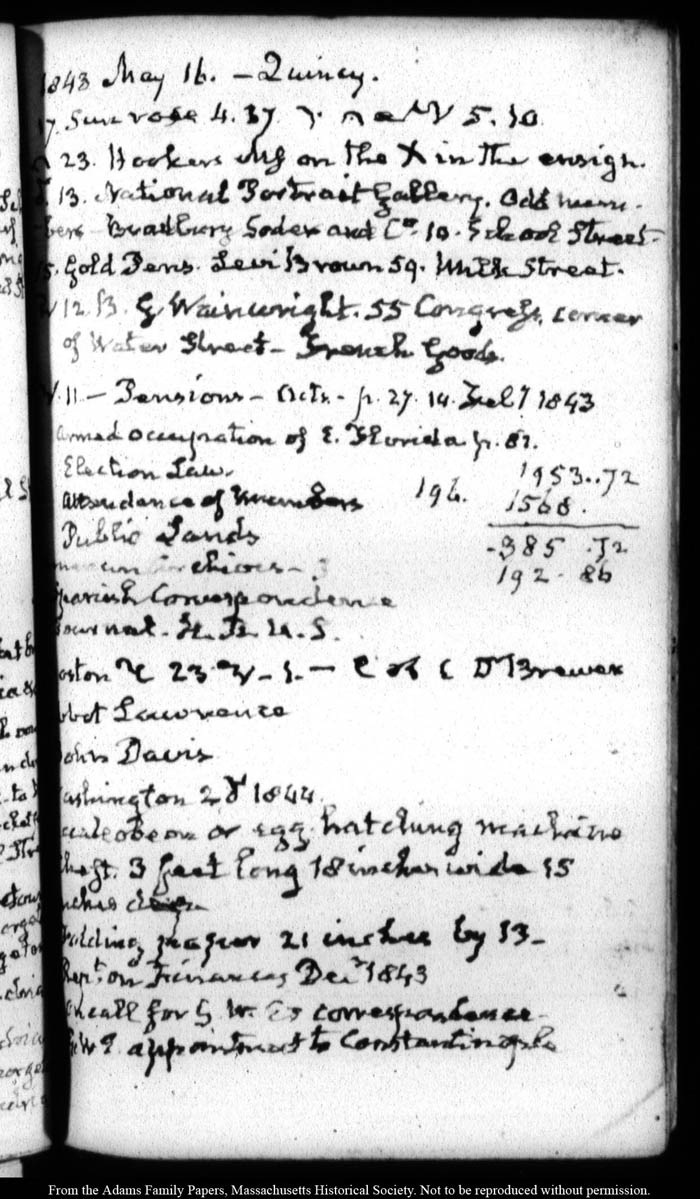 1843 May 16. – Quincy.
17. Sun rose 4. 37 5. 10
23. Hookers on the X in the ensign.
13. National Portrait Gallery. Odd num-
bers Bradbury Soden and Co. 10. School Street.
15. Gold Pens. Levi Brown 59. Milk Street.
12. B. G. Wainwright. 55 Congress, corner
of Water Street – French Goods.
11 – Pensions – Acts – p. 27. 14. 1843
armed occupation of E. Florida p. 81.
Election Law. 1953..72
attendance of Members 196. 1568.
Public Lands -385 .72
192. 86
Spanish Correspondence
Journal. H. R. U. S.
Boston 23 Dr Brewer
Abbot Lawrence
John Davis
Washington 2d 1844.
Eccaleobeon or egg hatching machine
Chest. 3 feet long 18 inches wide 15
inches deep
Folding paper 21 inches by 13–
Rept. on Finances Decr 1843
call for G. W. E's correspondence
appointment to Constantinople
From the Adams Family Papers, Massachusetts Historical Society. Not to be reproduced without permission.